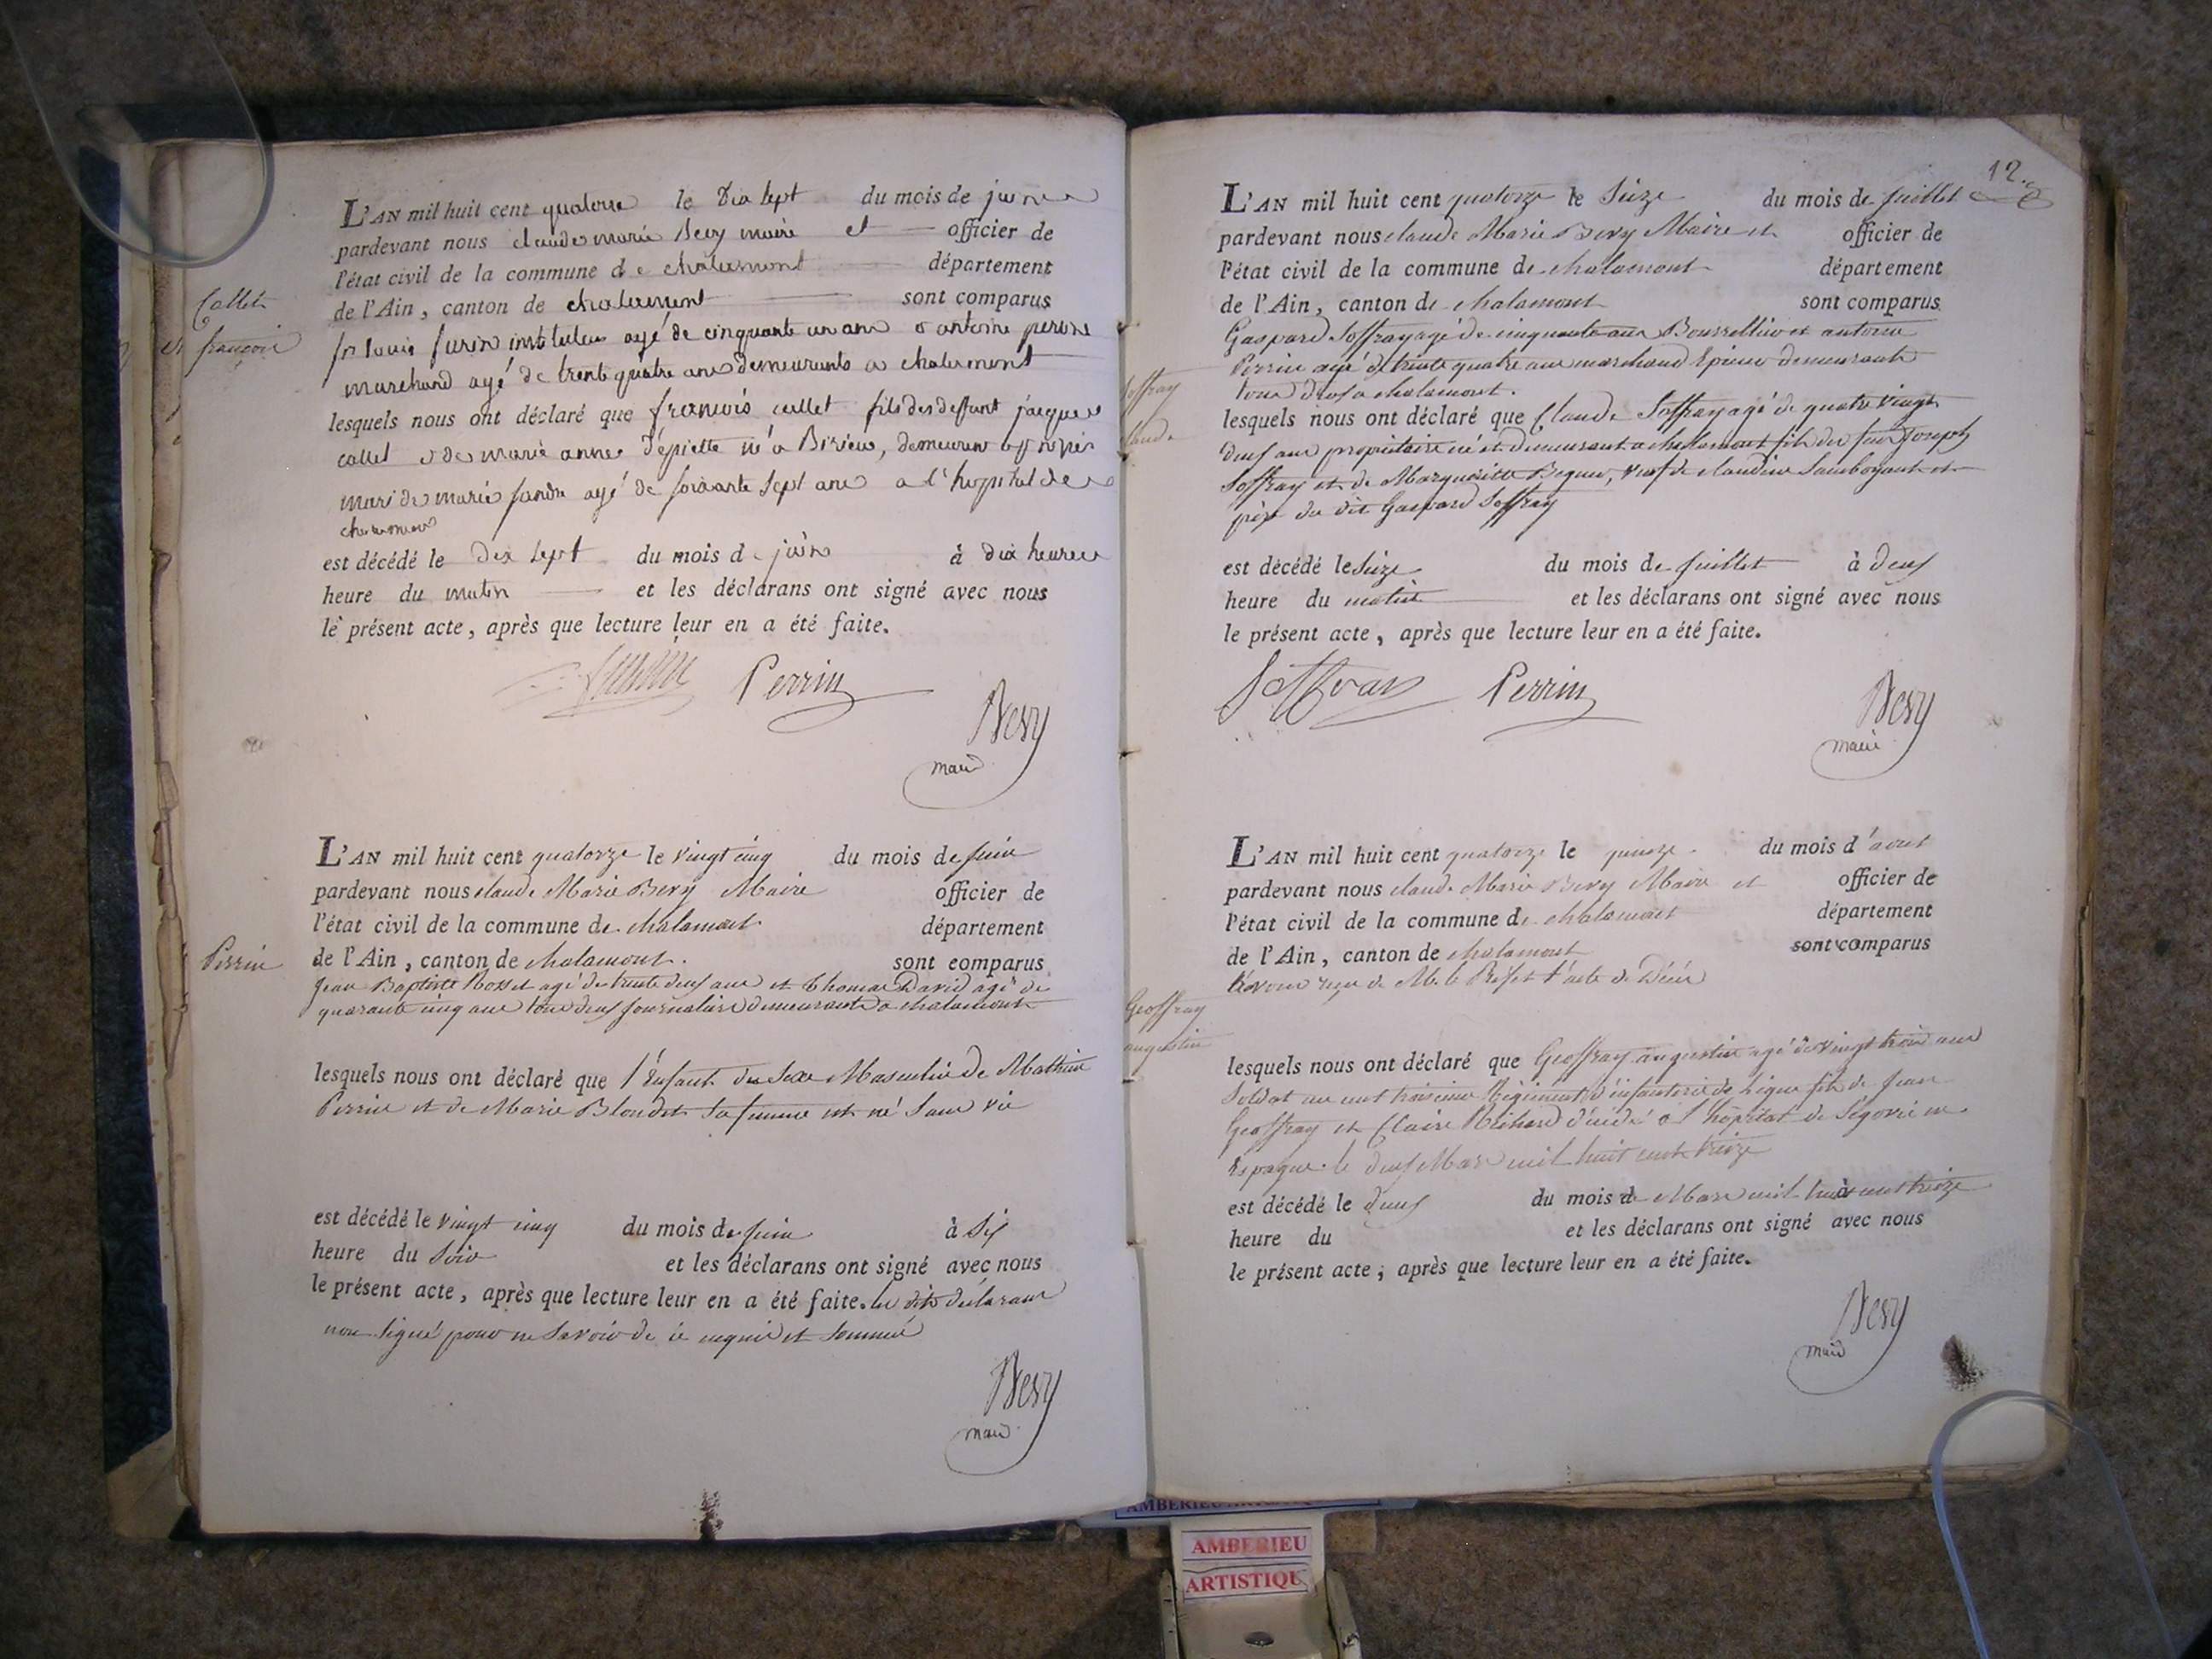 L'AN mil huit cent quatorze le Dix sept du mois de juin
pardevant nous claude marie Bery maire et officier de
l'état civil de la commune de chalamont département
de l'Ain, canton de chalamont sont comparus
louis instituteur agé de cinquante un ans antoine perrin
marchand agé de trente quatre ans demeurants a chalamont
lesquels nous ont déclaré que françois callet fils de deffunt jacques
callet de marie anne né a Birieux,
mari de marie agé de soixante sept ans a l'hopital de
chalamont
est décédé le Dix sept du mois de juin à dix heures
heure du matin et les déclarans ont signé avec nous
le présent acte, après que lecture leur en a été faite.
Perrin
Bery
maire
Callet
françois
L'AN mil huit cent quatorze le vingt cinq du mois de juin
pardevant nous claude Marie Bery Maire officier de
l'état civil de la commune de chalamont département
de l'Ain, canton de chalamont. sont comparus
Jean Baptiste Rosset agé de trente deux ans et Thomas David agé de
quarante cinq ans tous deux journaliers demeurants a chalamont
lesquels nous ont déclaré que l'Enfant du Sexe Masculin de Mathieu
Perrin et de Marie Blondet sa femme est né sans vie
est décédé le vingt cinq du mois de juin à six
heure du soir et les déclarans ont signé avec nous
le présent acte, après que lecture leur en a été faite. les dits déclarans
non signé pour ne savoir de ce enquis et sommé
Bery
maire
Perrin
12.
L'AN mil huit cent quatorze le Seize du mois de juillet
pardevant nous claude Marie Bery Maire et officier de
l'état civil de la commune de chalamont département
de l'Ain, canton de chalamont sont comparus
Gaspard Joffray agé de cinquante ans Bourrellier et antoine
Perrin agé de trente quatre ans marchand Epicier demeurants
tous deux a chalamont.
lesquels nous ont déclaré que Claude Joffray agé de quatre vingt
deux ans propriétaire né et demeurant a chalamont fils de feu Joseph
Joffray et de Marguerite veuf de claudine et
père du dit Gaspard Joffray
est décédé le seize du mois de juillet à deux
heure du matin et les déclarans ont signé avec nous
le présent acte, après que lecture leur en a été faite.
Joffray Perrin
Bery
maire
Joffray
claude
L'AN mil huit cent quatorze le quinze du mois d'aout
pardevant nous claude Marie Bery Maire et officier de
l'état civil de la commune de chalamont département
de l'Ain, canton de chalamont sont comparus
avons reçu de Mr le Préfet l'acte de Décès
lesquels nous ont déclaré que Geoffray augustin agé de vingt trois ans
Soldat au cent troisieme Régiment d'infanterie de Ligne fils de Jean
Geoffray et Claire Richard décédé a l'hôpital de Ségovie en
Espagne le deux Mars mil huit cent treize
est décédé le deux du mois de Mars mil huit cent treize à
heure du et les déclarans ont signé avec nous
le présent acte, après que lecture leur en a été faite.
Bery
maire
Geoffray
augustin
AMBERIEU
ARTISTIQU